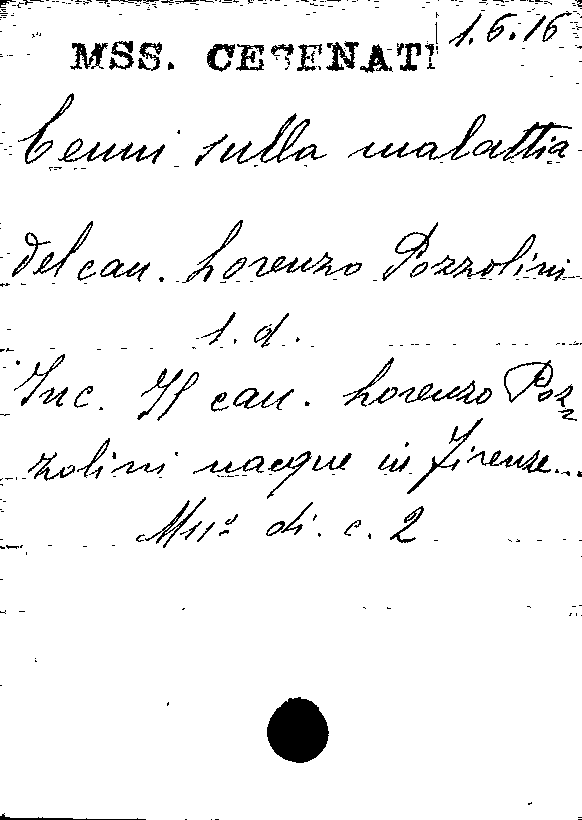 1.6.16
MSS. CESENATI
Cenni sulla malattia
del can. Lorenzo Pozzolini
s.d.
Inc. Il can. Lorenzo Poz=
zolini nacque in Firenze...
Ms. di. c. 2